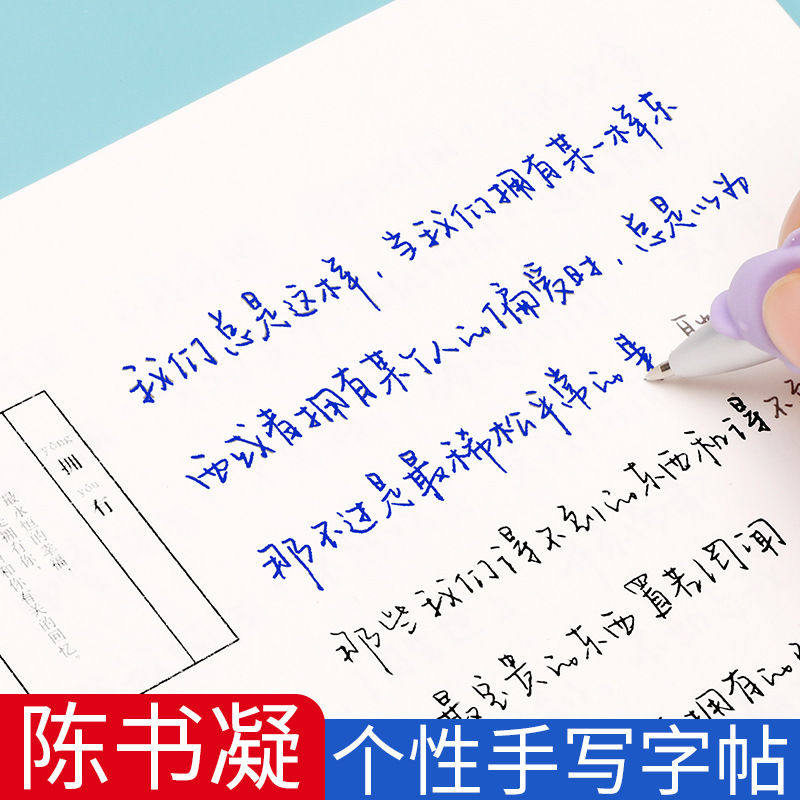 我们总是这样，当我们拥有某一样东
西或者拥有某个人的偏爱时，总是以为
那不过是最稀松平常的
那些我们得不到的东西和得不
最宝贵的东西置若罔闻
拥有的
yōng
拥
yǒu
有
最永恒的幸福，
是拥有你，
有关的回忆。
陈书凝
个性手写字帖